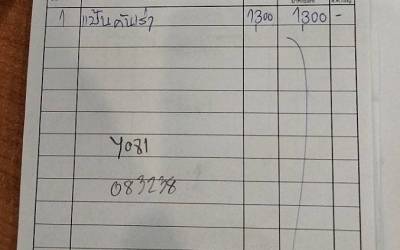 1 แป้นคันเร่ง 1,300 1,300 -
Y081
083238